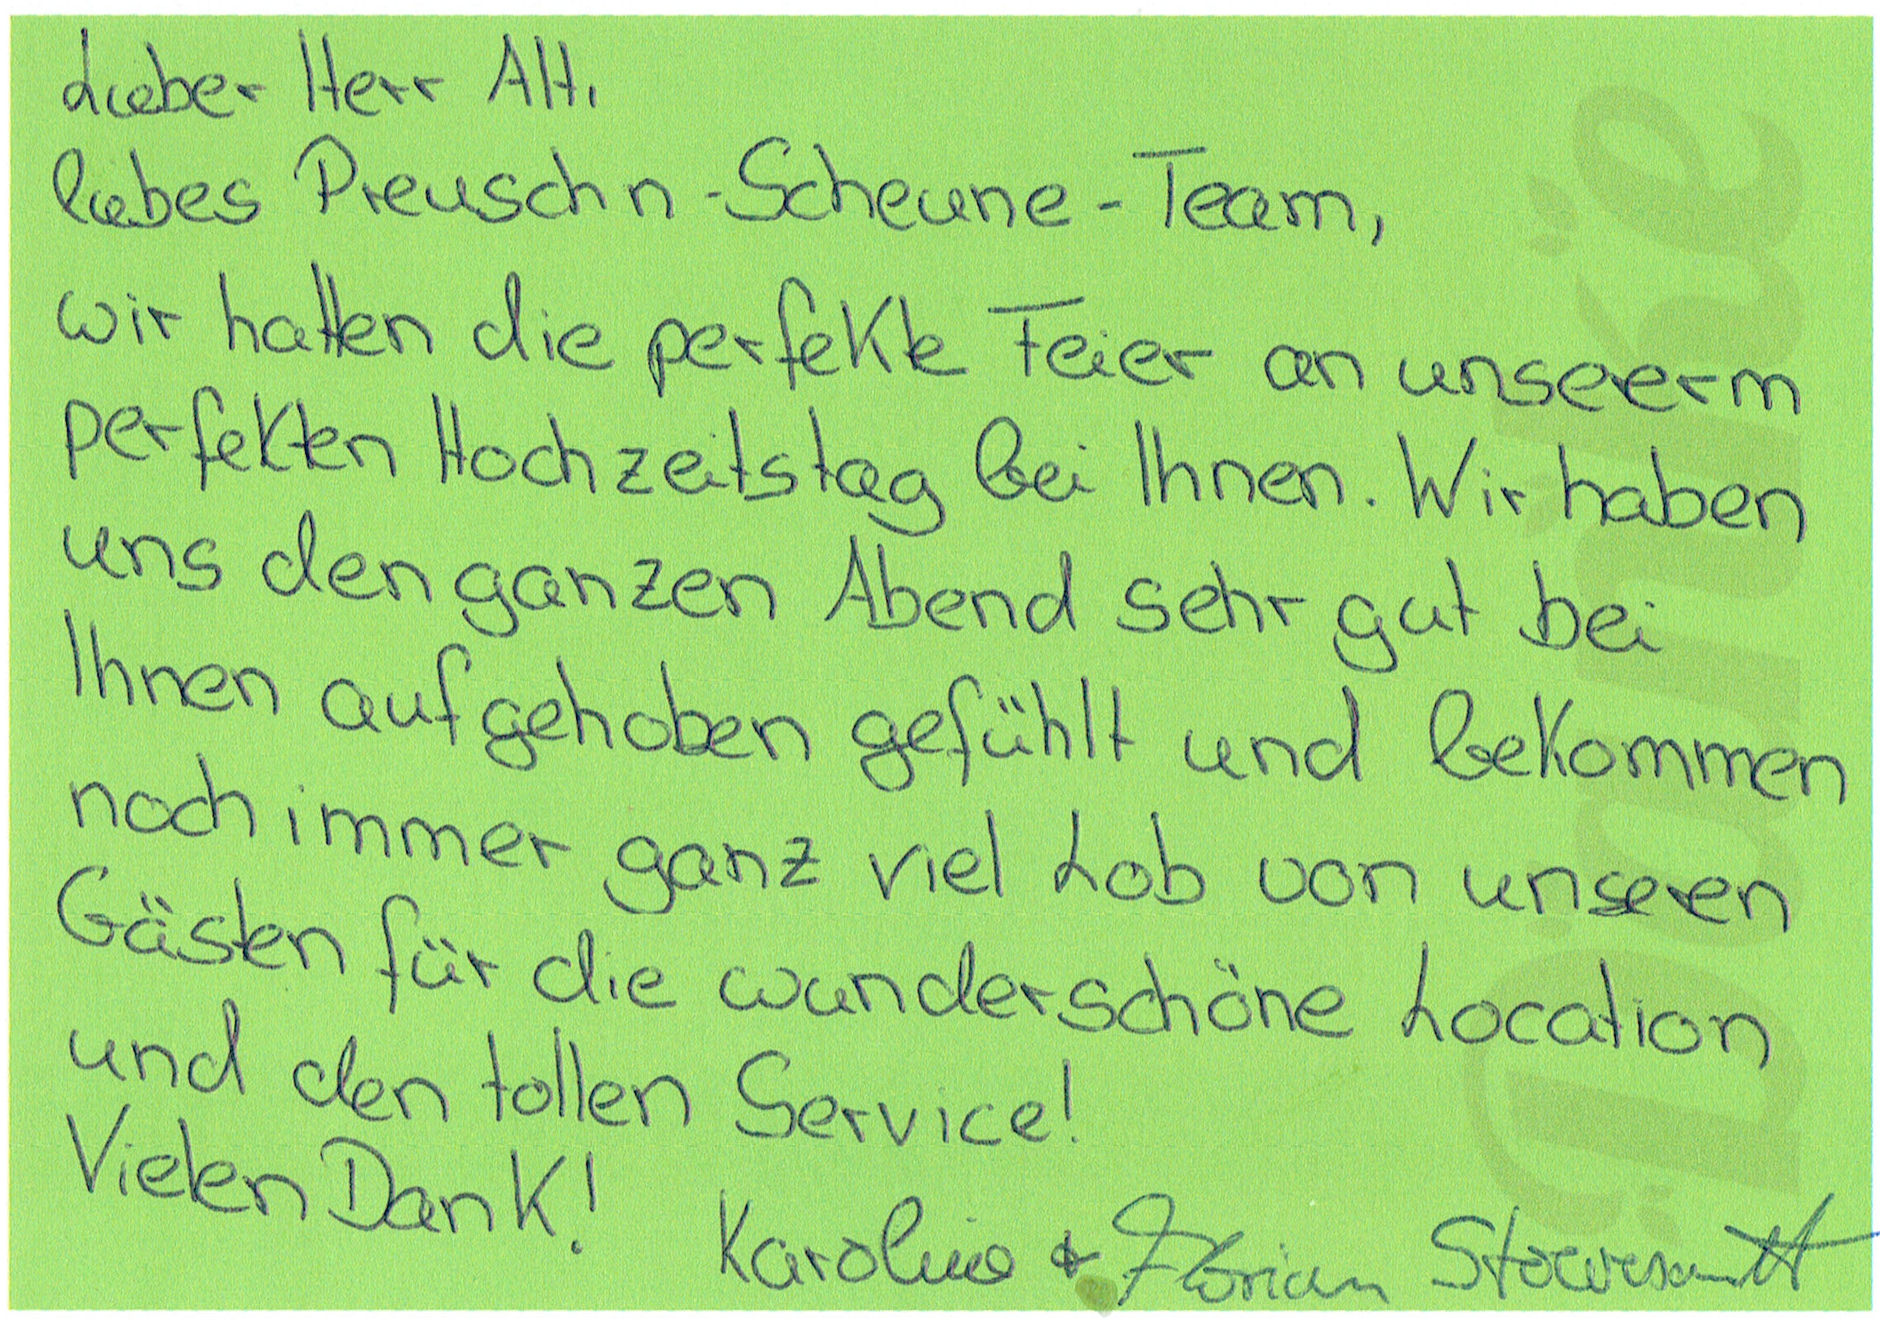 Lieber Herr Alt,
liebes Preuschn-Scheune-Team,
wir hatten die perfekte Feier an unseerm
perfekten Hochzeitstag bei Ihnen. Wir haben
uns den ganzen Abend sehr gut bei
Ihnen aufgehoben gefühlt und bekommen
noch immer ganz viel Lob von unseren
Gästen für die wunderschöne Location
und den tollen Service!
Vielen Dank!
Karoline & Florian
Danke